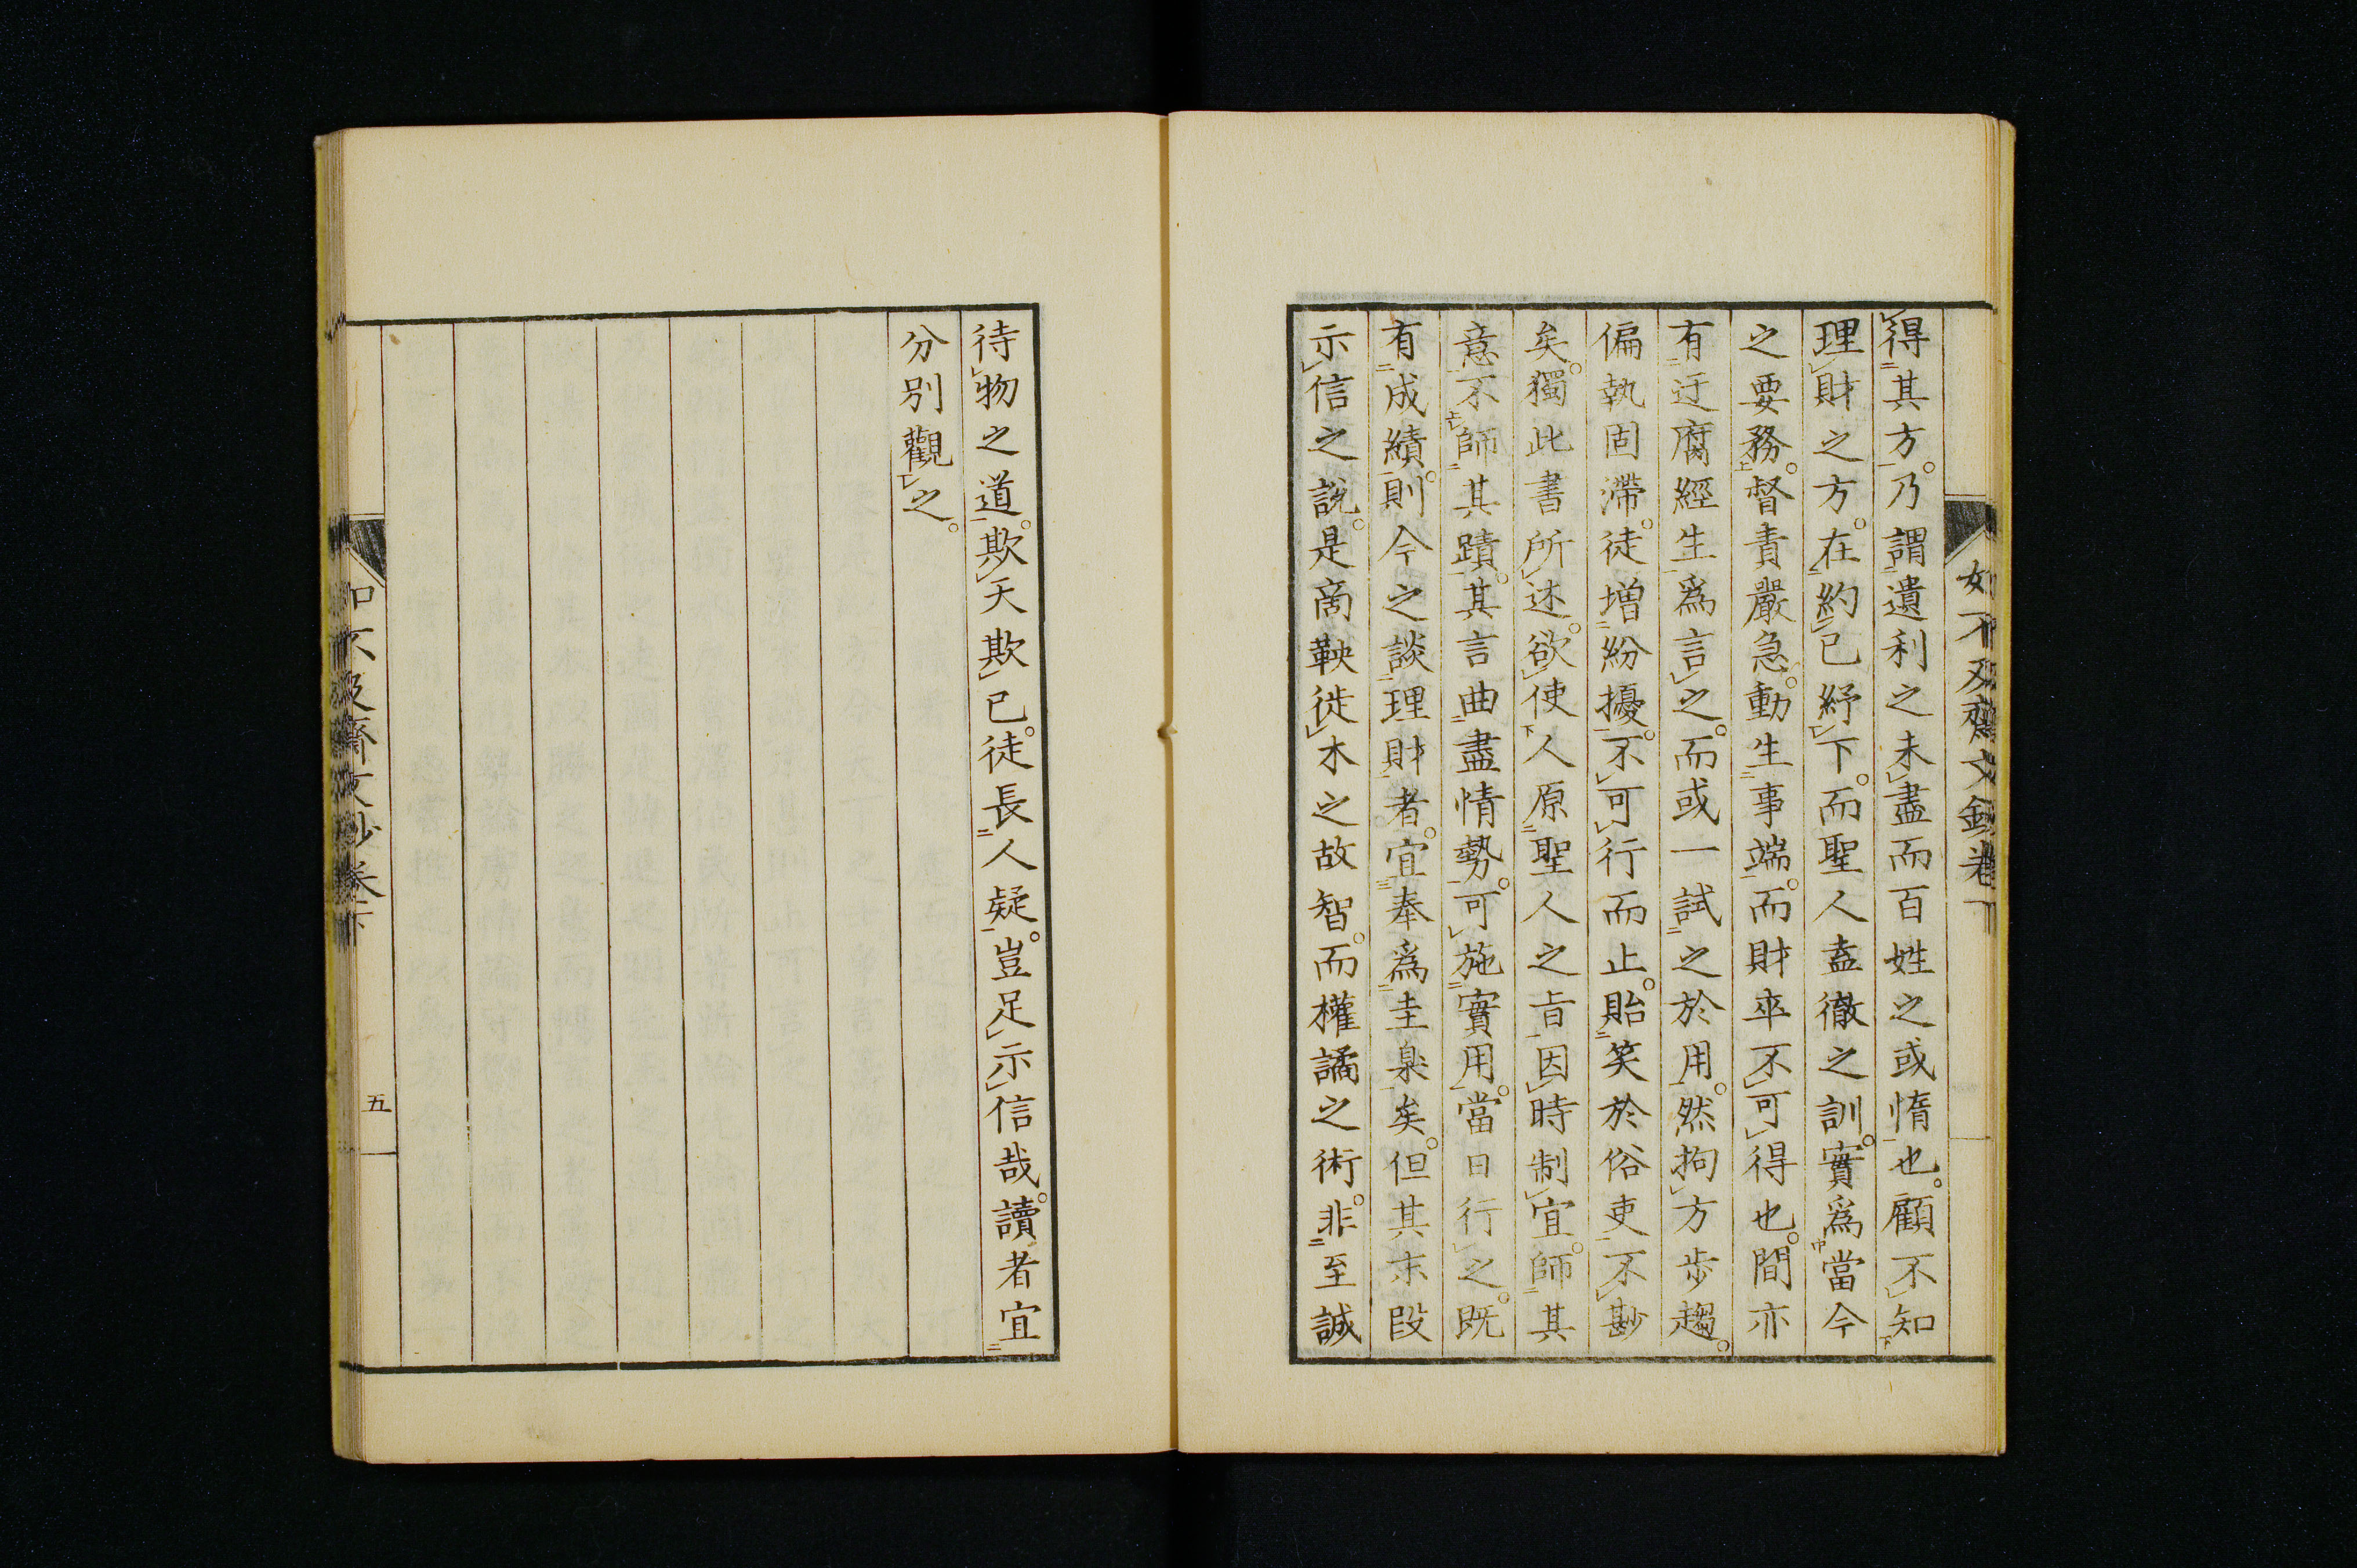 得其方。乃謂遺利之未盡而百姓之或惰也。顧不知
理財之方。在約已紓下。而聖人盍徹之訓。實爲當今
之要務。督責嚴急。動生事端。而財卒不可得也。間亦
有迂腐經生爲言之。而或一試之於用。然拘方步趨。
偏執固滯。徒增紛擾。不可行而止。貽笑於俗吏不尠
矣。獨此書所述。欲使人原聖人之旨因時制宜。師其
意不師其蹟。其言曲盡情勢。可施實用。當日行之。既
有成績。則今之談理財者。宜奉爲圭臬矣。但其末段
示信之說。是商鞅徙木之故智。而權譎之術。非至誠
待物之道。欺天欺已。徒長人疑。豈足示信哉。讀者宜
分別觀之。
如不及齋文鈔卷下
五